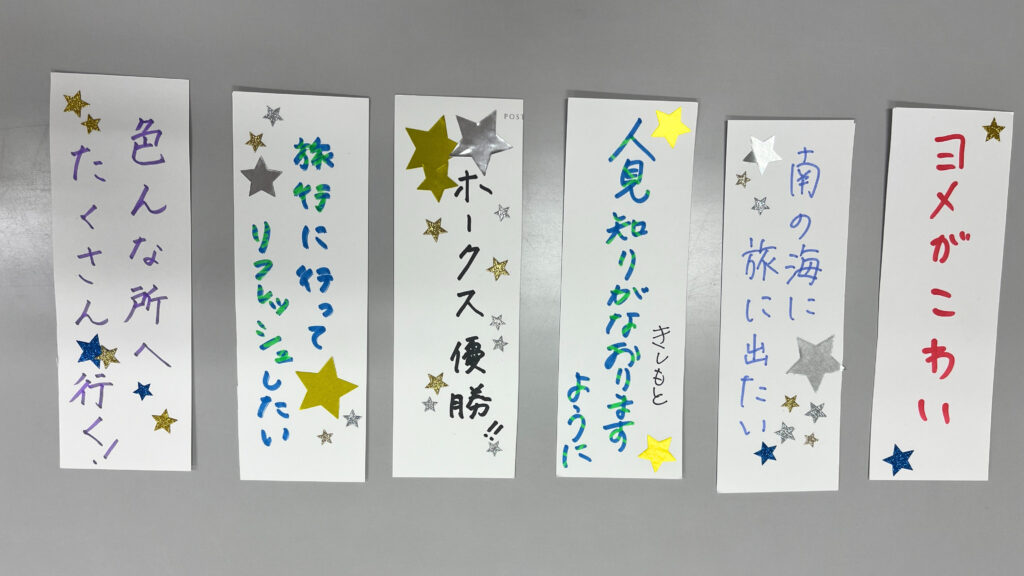 色んな所へ
たくさん行く!
旅行に行って
リフレッシュしたい
POST
ホークス優勝!!
人見知りがなおります
ように
きしもと
南の海に
旅に出たい
ヨメがこわい